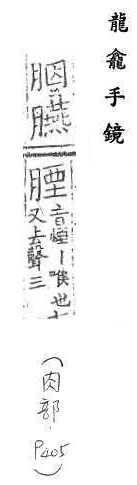 龍龕手鏡
胭臙
𦜆音煙丨喉也
又上聲三
(肉部.
P405)